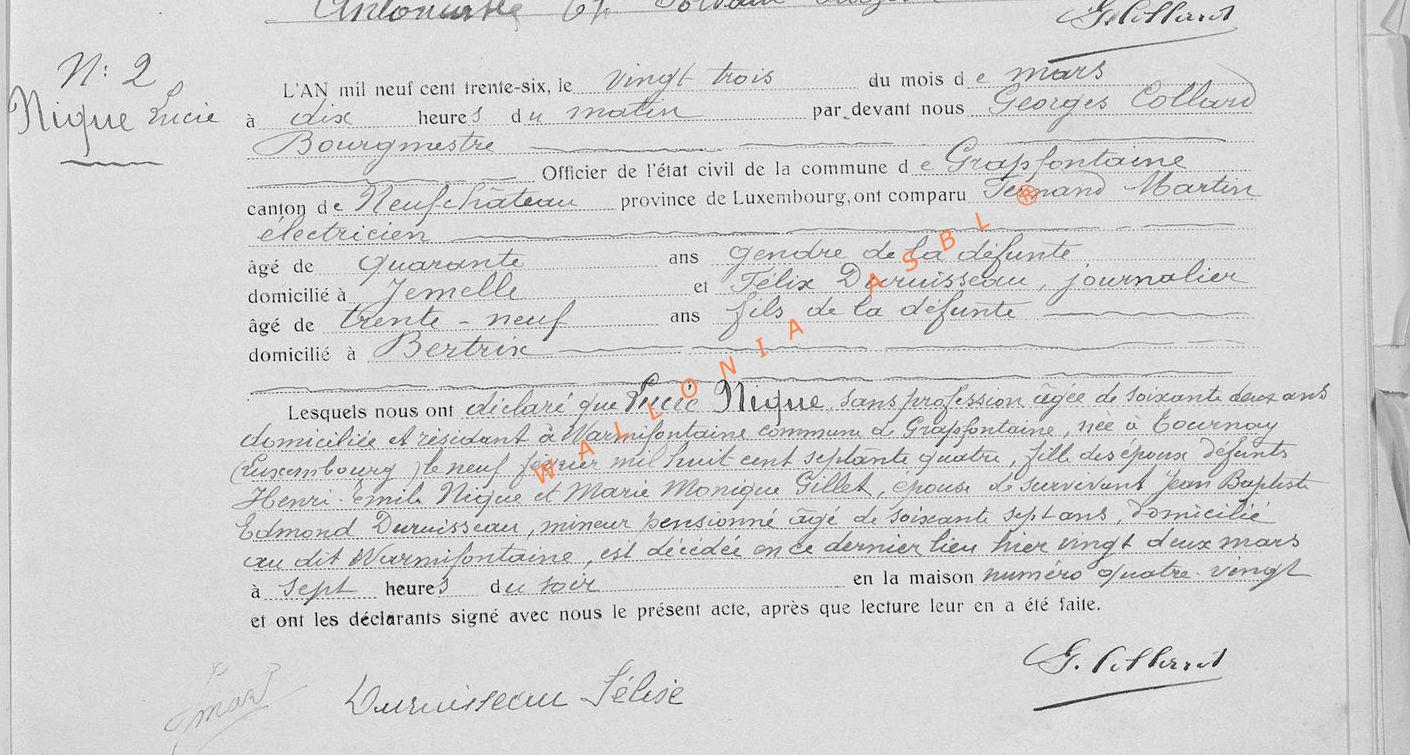 G. Collard
N: 2
Nique Lucie
L'AN mil neuf cent trente-six, le vingt trois du mois de mars
à dix heures du matin par devant nous Georges Collard
Bourgmestre
Officier de l'état civil de la commune de Grapfontaine
canton de Neufchâteau province de Luxembourg, ont comparu Fernand Martin
électricien
âgé de quarante ans gendre de la défunte
domicilié à Jemelle et Félix Duruisseau, journalier
âgé de trente-neuf ans fils de la défunte
domicilié à Bertrix
Lesquels nous ont déclaré que Lucie Nique, sans profession âgée de soixante deux ans
domiciliée et résidant à Warmifontaine commune de Grapfontaine, née à Tournay
(Luxembourg) le neuf février mil huit cent septante quatre, fille des époux défunts
Henri-Emile Nique et Marie Monique Gillet, épouse de survivant Jean Baptiste
Edmond Duruisseau, mineur pensionné âgé de soixante sept ans, domicilié
au dit Warmifontaine, est décédée en ce dernier lieu hier vingt deux mars
à sept heures du soir en la maison numéro quatre-vingt
et ont les déclarants signé avec nous le présent acte, après que lecture leur en a été faite.
G. Collard
Duruisseau Félix
WALLONIA ASBL ®